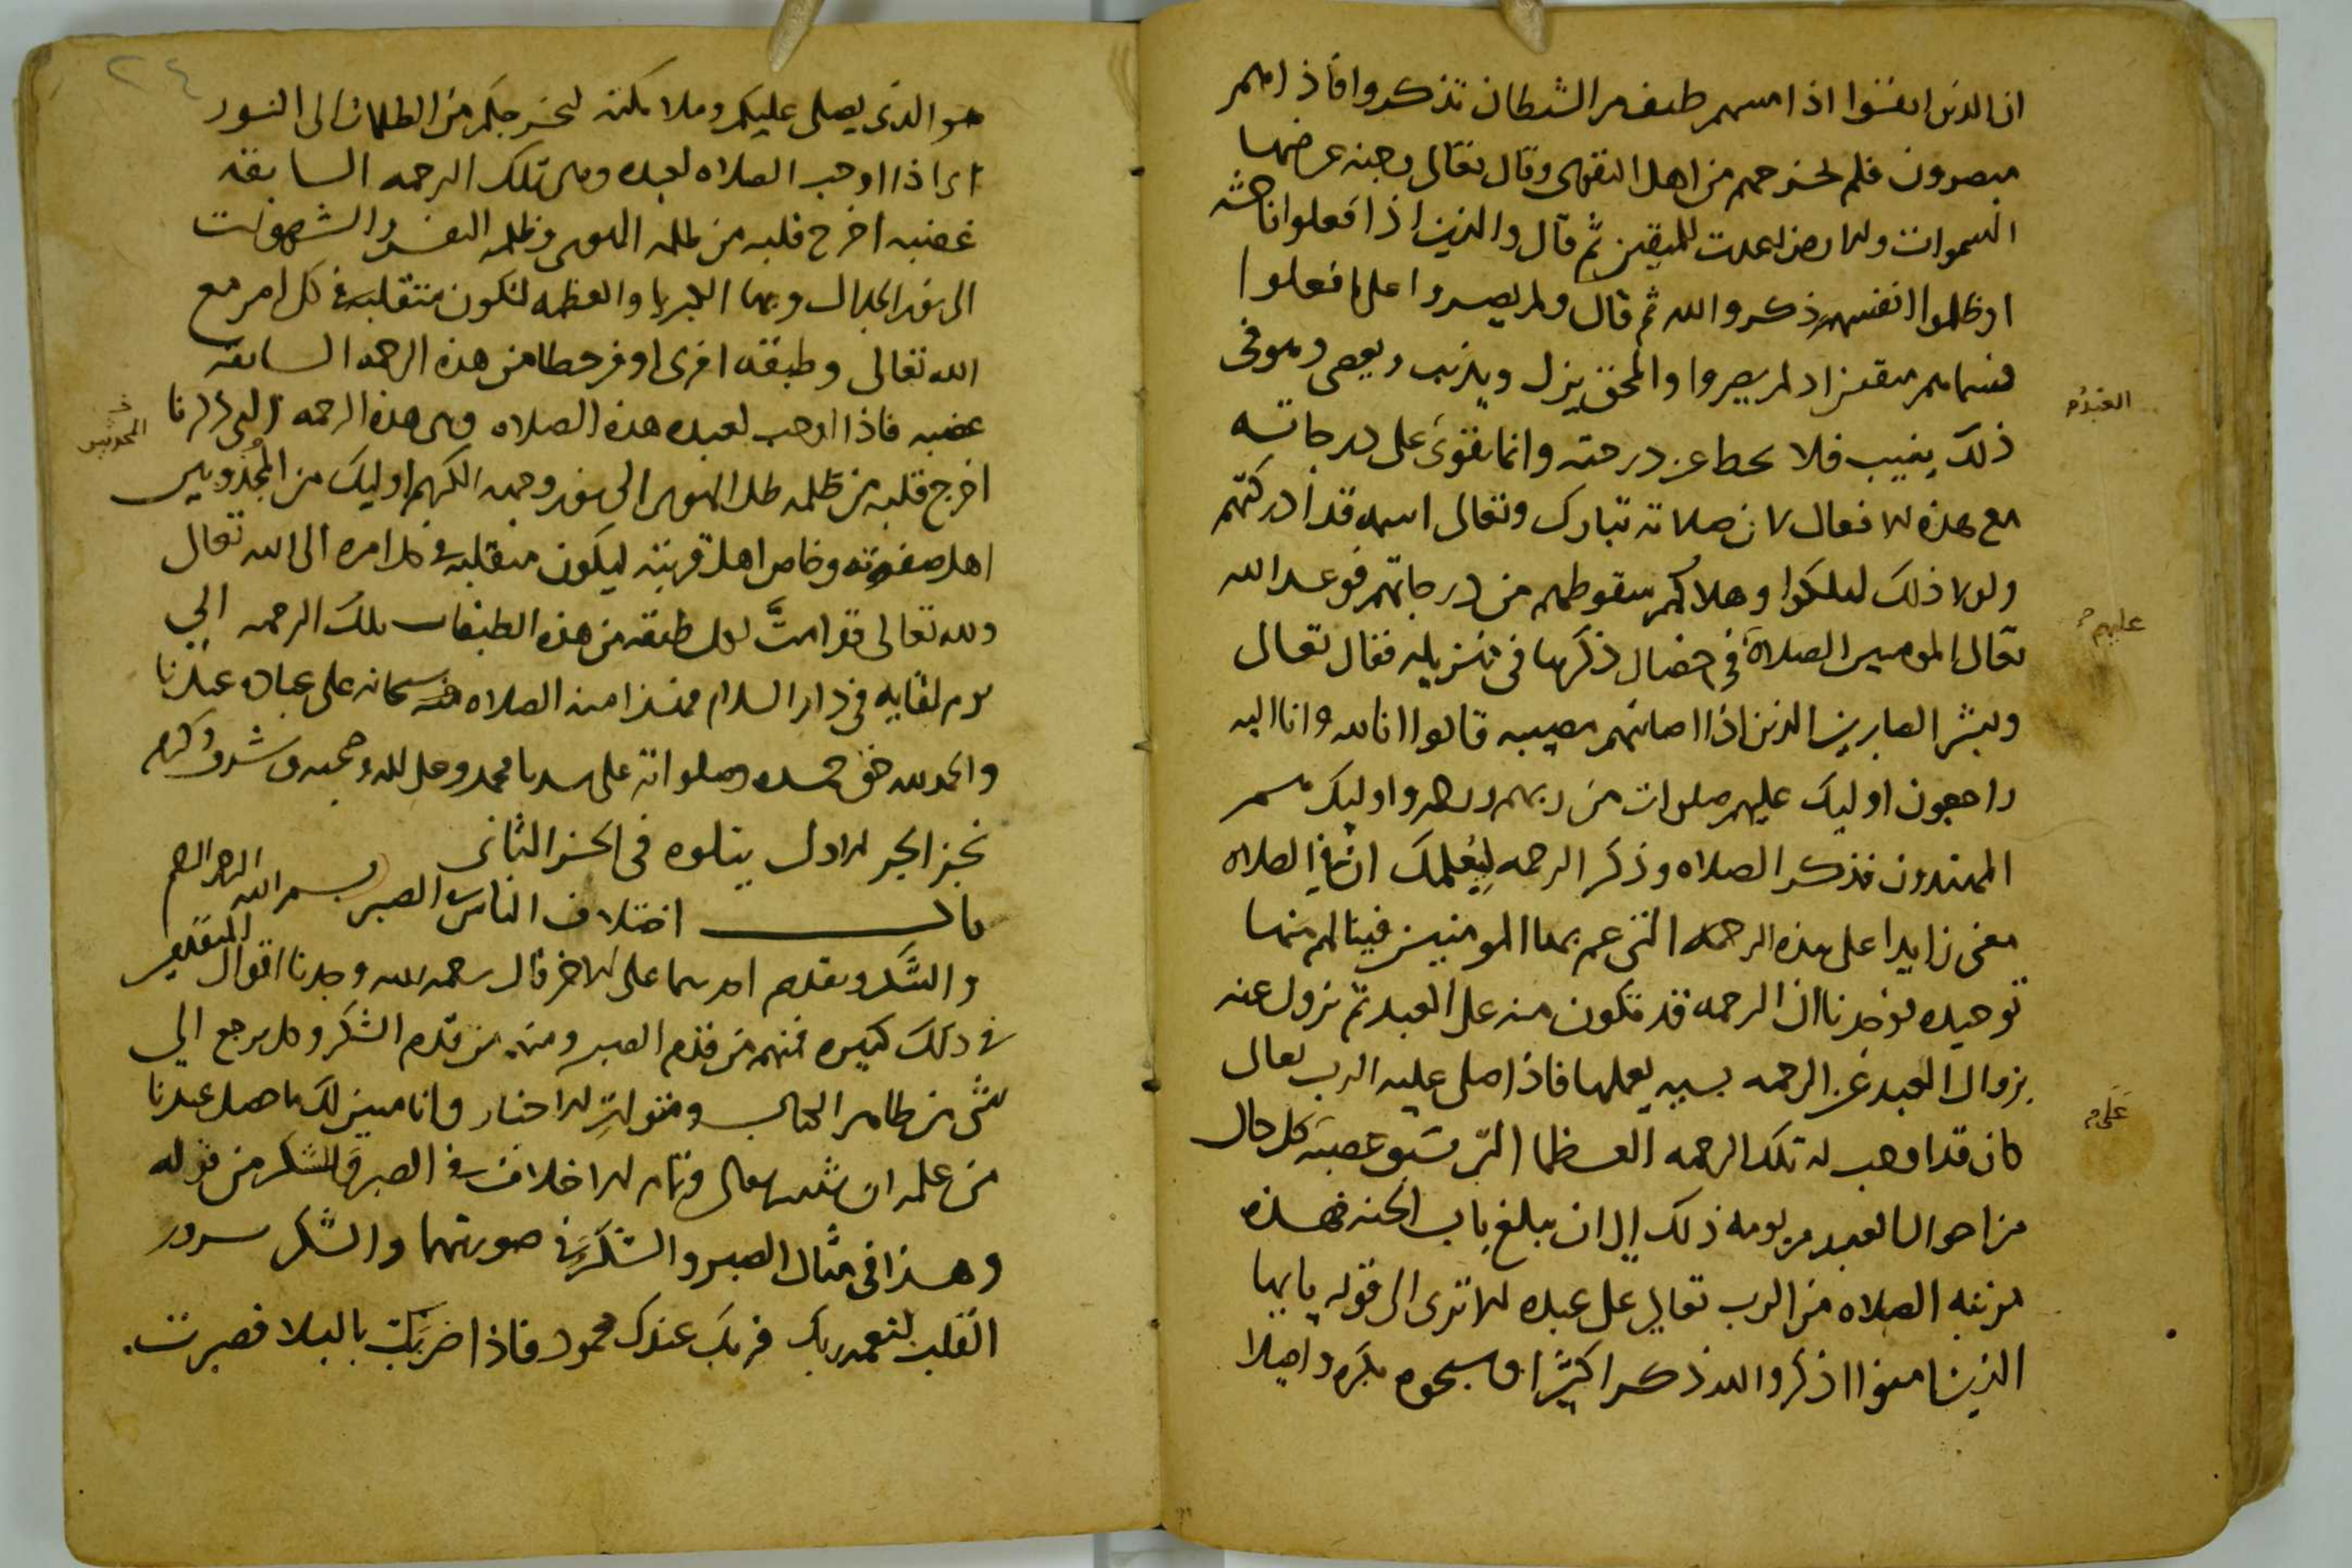 ان الذين اتقوا اذا مسهم طيف من الشيطان تذكروا فاذا هم
مبصرون فلم يخرجهم من اهل التقوى وقال تعالى وجنه عرضها
السموات والارض اعدت للمتقين ثم قال والذين اذا فعلوا فاحشه
او ظلموا انفسهم ذكروا الله ثم قال ولم يصروا على ما فعلوا
فسماهم متقين اذ لم يصروا والمحق يزل ويذنب ويعصي وهو في
ذلك ينيب فلا يحط عن درجته وانما تقوى على درجاته
مع هذه الافعال لان صلاته تبارك وتعالى اسمه قد ادركتهم
ولولا ذلك لهلكوا وهلاكهم سقوطهم من درجاتهم فوعد الله
تعالى المومنين الصلاة في خصال ذكرها في تنزيله فقال تعالى
وبشر الصابرين الذين اذا اصابتهم مصيبه قالوا انا لله وانا اليه
راجعون اوليك عليهم صلوات من ربهم ورحمه واوليك هم
المهتدون فذكر الصلاه وذكر الرحمه ليعلمك ان في الصلاه
معنى زايدا على هذه الرحمه التي عم بها المومنين فينالهم منها
توحيده فوجدنا ان الرحمه قد تكون منه على العبد ثم تزول عنه
بزوال العبد عن الرحمه بسيه يعملها فاذا صلى عليه الرب تعالى
كان قد اوهب له تلك الرحمه العظما التي تسبق غضبه كل حال
من احوال العبد من يومه ذلك الى ان يبلغ باب الجنه فهذه
مرتبه الصلاه من الرب تعالى على عبده الا ترى الى قوله يا ايها
الذين امنوا اذكروا الله ذكرا كثيرا وسبحوه بكره واصيلا
عليهم
على
٢٤
هو الذي يصلي عليكم وملايكته ليخرجكم من الظلمات الى النور
اي اذا اوهب الصلاه لعبده وهي تلك الرحمه السابقه
غضبه اخرج قلبه من ظلمه الهوى وظلمه النفس والشهوات
الى نور الجلال وبها الكبريا والعظمه لتكون متقلبه في كل امر مع
الله تعالى وطبقه اخرى اوفر حظا من هذه الرحمه السابقه
غضبه فاذا اوهب لعبده هذه الصلاه وهي هذه الرحمه التي ذكرنا
اخرج قلبه من ظلمه ظلل الهوى الى نور وجهه الكريم اوليك من المجذوبين
اهل صفوته وخاص اهل قربته ليكون متقلبه في كل امره الى الله تعالى
ولله تعالى قد امت لكل طبقه من هذه الطبقات بتلك الرحمه الى
يوم لقايه في دار السلام فهذا منه الصلاه منه سبحانه على عباده عندنا
والحمد لله حق حمده وصلواته على سيدنا محمد وعلى اله وصحبه وشرف وكرم
نجز الجز الاول يتلوه في الجز الثاني
بسم الله الرحمن الرحيم
باب اختلاف الناس في الصبر
والشكر وتقدم احدهما على الاخر قال رحمه الله وجدنا اقوال المتقدمين
في ذلك كثيره فمنهم من قدم الصبر ومنهم من قدم الشكر وكل يرجع الى
شي من ظاهر الكتاب ومتواتر الاخبار وانا مبين لك ما حصل عندنا
من علمه ان شا الله تعالى وبيان الاختلاف في الصبر والشكر من قوله
وهذا في مثال الصبر والشكر في صورتهما والشكر سرور
القلب لنعمه ربك فربك عندك محمود فاذا ضربك بالبلا فصبرت